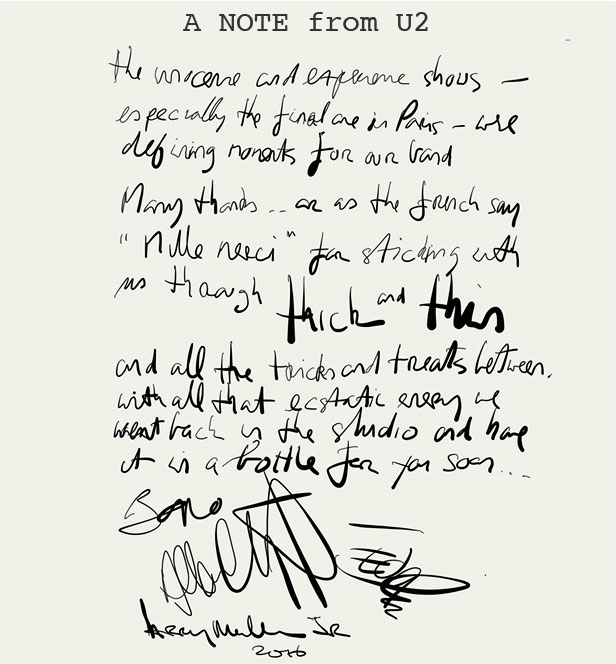 A NOTE from U2
the innocence and experience shows —
especially the final one in Paris – were
defining moments for our band
Many thanks... or as the french say
"Mille merci" for sticking with
us through thick and thin
and all the tricks and treats between.
with all that ecstatic energy we
went back in the studio and have
it in a bottle for you soon....
Bono
Adam
Edge
Larry Mullen JR
2016